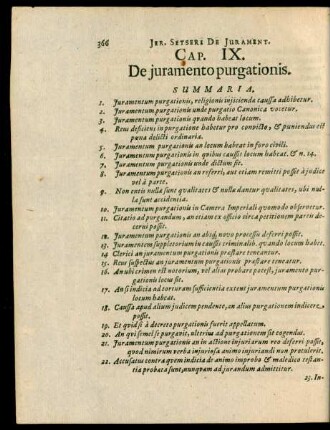 366 Jer. Setseri De Jurament.
Cap. IX.
De juramento purgationis.
SUMMARIA.
1. Juramentum purgationis, religionis injiciendæ caussa adhibetur.
2. Juramentum purgationis unde purgatio Canonica vocetur.
3. Juramentum purgationis quando habeat locum.
4. Reus deficiens in purgatione habetur pro convicto, & puniendus est
pœna delicti ordinaria.
5. Juramentum purgationis an locum habeat in foro civili.
6. Juramentum purgationis in quibus caussis locum habeat. & n. 14.
7. Juramentum purgationis unde dictum sit.
8. Juramentum purgationis an referri, aut etiam remitti possit à judice
vel à parte.
9. Non entis nulla sunt qualitates & nulla dantur qualitates, ubi nul-
la sunt accidentia.
10. Juramentum purgationis in Camera Imperiali quomodo observetur.
11. Citatio ad purgandum, an etiam ex officio circa petitionem partis de-
cerni possit.
12. Juramentum purgationis an absq; novo processu deferri possit.
13. Juramentum suppletorium in caussis criminalib. quando locum habet.
14. Clerici an juramentum purgationis præstare teneantur.
15. Reus suspectus an juramentum purgationis præstare teneatur.
16. An ubi crimen est notorium, vel aliàs probare potest, juramento pur-
gationis locus sit.
17. An si indicia ad torturam sufficientia extent juramentum purgationis
locum habeat.
18. Caussa apud alium judicem pendente, an alius purgationem indicere
possit.
19. Et quid si à decreto purgationis fuerit appellatum.
20. An qui semel se purgavit, alterius ad purgationem sit cogendus.
21. Juramentum purgationis an in actione injuriarum reo deferri possit,
quod nimirum verba injuriosa animo injuriandi non protulerit.
22. Accusatus contra quem indicia de animo improbo & maledico testan-
tia probata sunt, nunquam ad jurandum admittitur.
23. In-